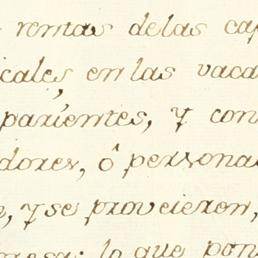 remas delas cap
icales, en las vaca
parientes, y con
dores, ô persona
, y se proveieron,
lo que pon